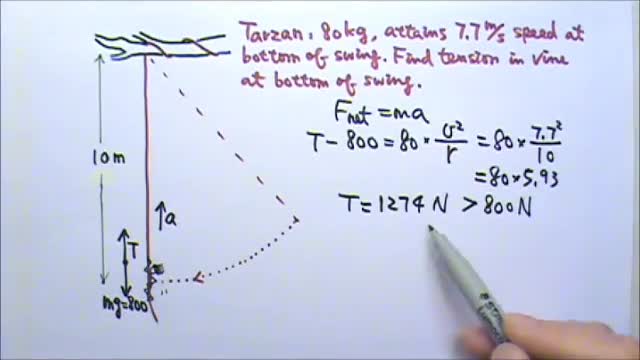 Tarzan, 80kg, attains 7.7 m/s speed at
bottom of swing. Find tension in vine
at bottom of swing.
Fnet = ma
T - 800 = 80 × v²/r = 80 × 7.7²/10
= 80 × 5.93
T = 1274 N > 800 N
10m
a
T
mg=800